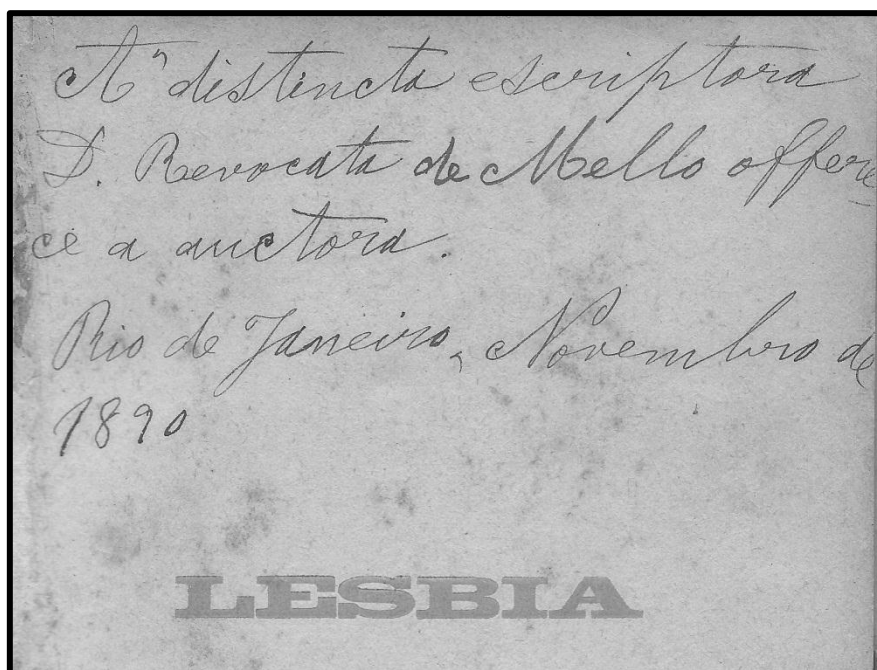 A' distincta escriptora
D. Revocata de Mello offere-
ce a auctora.
Rio de Janeiro, Novembro de
1890
LESBIA